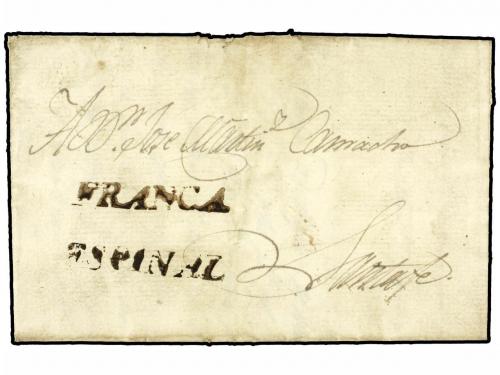 A Dn. Jose Martin Camacho
FRANCA
ESPINAL
Santafe.